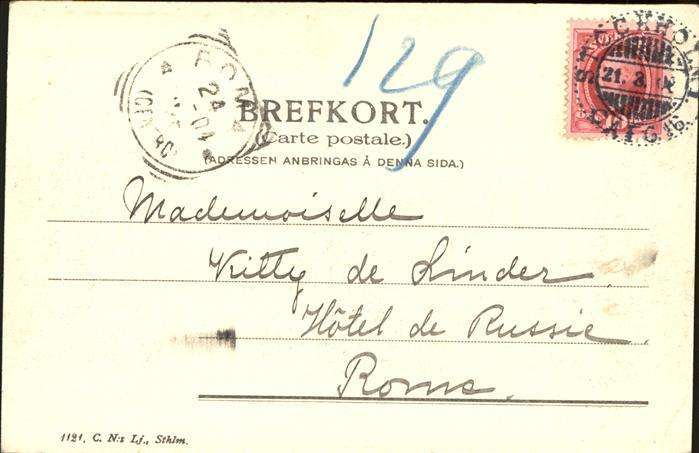 129
ROMA
24
04
STOCKHOLM
21. 3.
BREFKORT.
(Carte postale.)
(ADRESSEN ANBRINGAS Å DENNA SIDA.)
Mademoiselle
Kitty de Linder.
Hôtel de Russie.
Rome.
1121, C. N:s Lj., Sthlm.